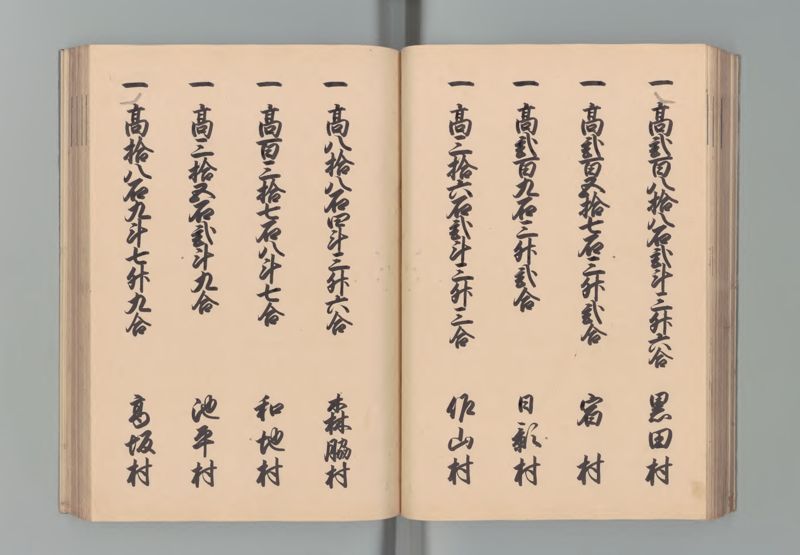 一 高弐百八拾八石弐斗三升六合 黒田村
一 高弐百五拾七石三升弐合 宿村
一 高弐百九石三升弐合 日影村
一 高三拾六石弐斗三升三合 作山村
一 高八拾八石四斗三升六合 森脇村
一 高百三拾七石八斗七合 和地村
一 高三拾五石弐斗九合 池平村
一 高拾八石九斗七升九合 高坂村